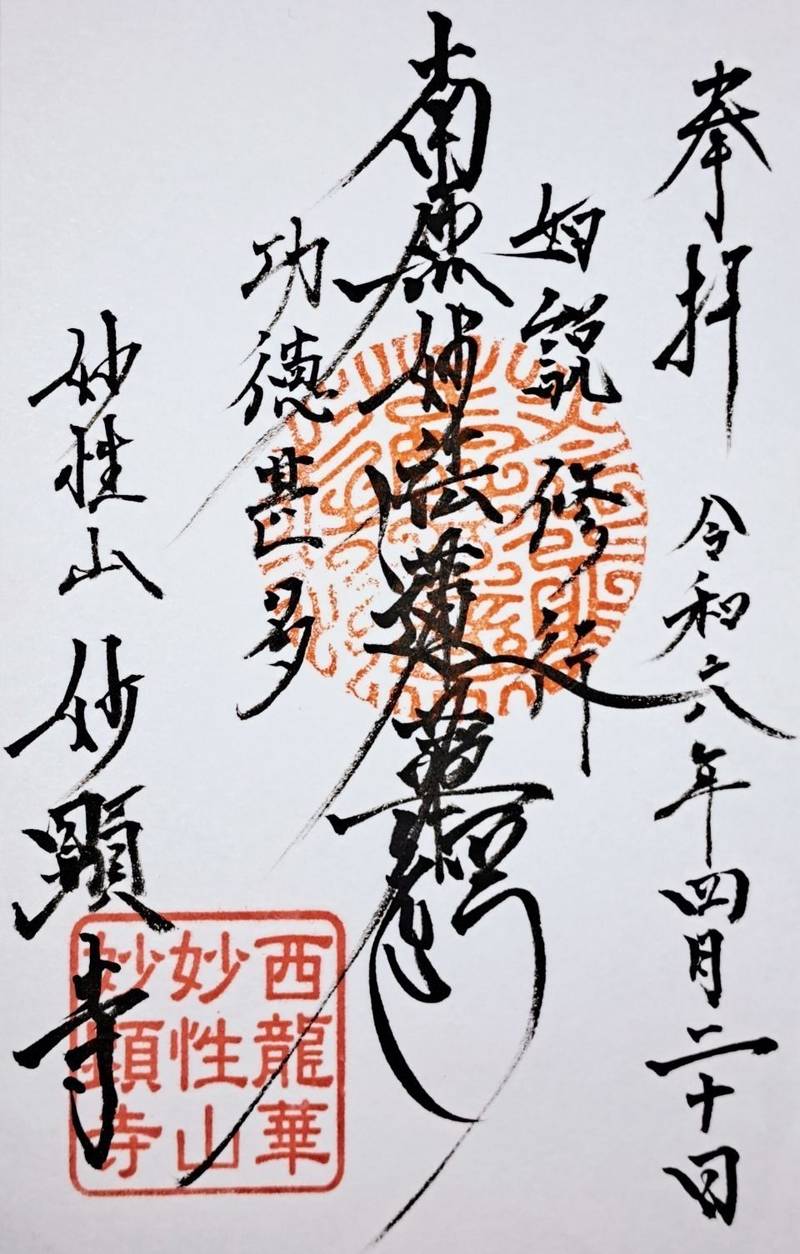 奉拝 令和六年四月二十日
如説修行
南無妙法蓮華経
功徳甚多
妙性山 妙顕寺
西龍華
妙性山
妙顕寺